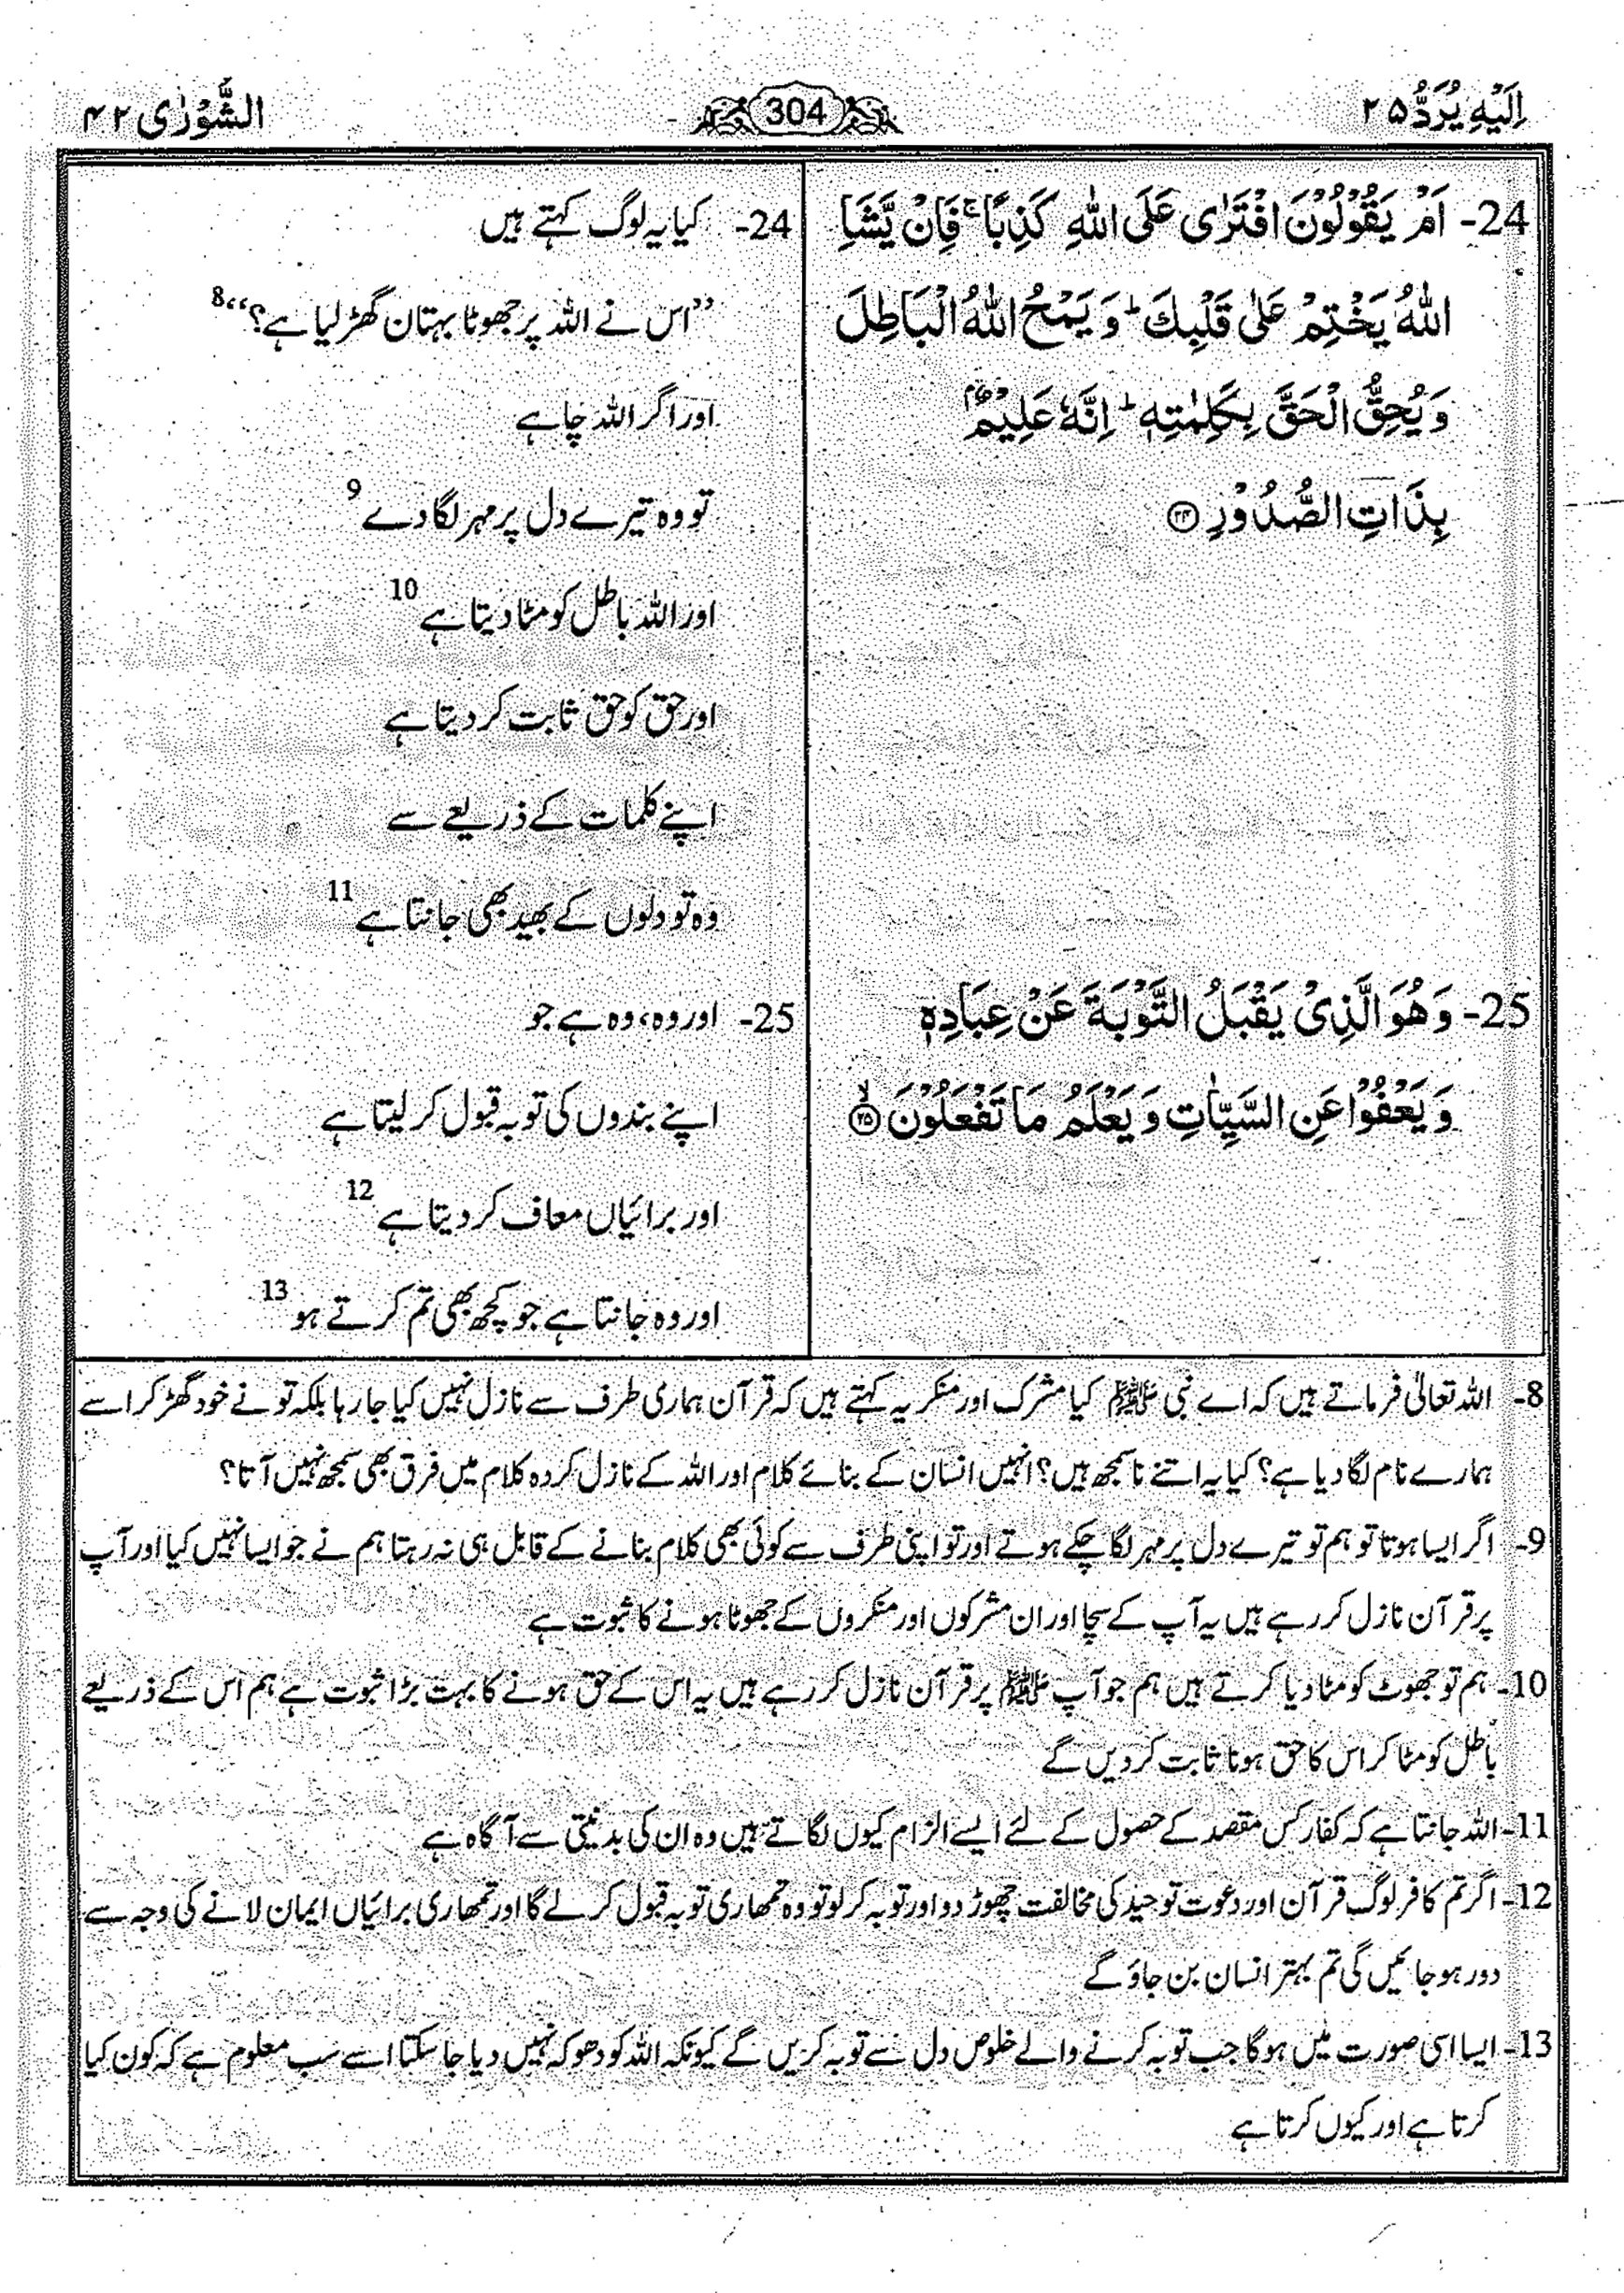 اِلَيْهِ يُرَدُّ ۲۵
304
الشُّوْرٰى ۴۲
24- اَمْ يَقُوْلُوْنَ افْتَرٰى عَلَى اللّٰهِ كَذِبًا ۚ فَاِنْ يَّشَاِ
اللّٰهُ يَخْتِمْ عَلٰى قَلْبِكَ ؕ وَ يَمْحُ اللّٰهُ الْبَاطِلَ
وَ يُحِقُّ الْحَقَّ بِكَلِمٰتِهٖ ؕ اِنَّهٗ عَلِيْمٌۢ
بِذَاتِ الصُّدُوْرِ ﴿۲۴﴾
25- وَ هُوَ الَّذِىْ يَقْبَلُ التَّوْبَةَ عَنْ عِبَادِهٖ
وَ يَعْفُوْا عَنِ السَّيِّاٰتِ وَ يَعْلَمُ مَا تَفْعَلُوْنَ ﴿۲۵﴾ ۙ
24- کیا یہ لوگ کہتے ہیں
”اس نے اللہ پر جھوٹا بہتان گھڑ لیا ہے؟“ 8
اور اگر اللہ چاہے
تو وہ تیرے دل پر مہر لگا دے 9
اور اللہ باطل کو مٹا دیتا ہے 10
اور حق کو حق ثابت کر دیتا ہے
اپنے کلمات کے ذریعے سے
وہ تو دلوں کے بھید بھی جانتا ہے 11
25- اور وہ، وہ ہے جو
اپنے بندوں کی توبہ قبول کر لیتا ہے
اور برائیاں معاف کر دیتا ہے 12
اور وہ جانتا ہے جو کچھ بھی تم کرتے ہو 13
8- اللہ تعالیٰ فرماتے ہیں کہ اے نبی ﷺ کیا مشرک اور منکر یہ کہتے ہیں کہ قرآن ہماری طرف سے نازل نہیں کیا جا رہا بلکہ تو نے خود گھڑ کر اسے
ہمارے نام لگا دیا ہے؟ کیا یہ اتنے نا سمجھ ہیں؟ انہیں انسان کے بنائے کلام اور اللہ کے نازل کردہ کلام میں فرق بھی سمجھ نہیں آتا؟
9- اگر ایسا ہوتا تو ہم تو تیرے دل پر مہر لگا چکے ہوتے اور تو اپنی طرف سے کوئی بھی کلام بنانے کے قابل ہی نہ رہتا ہم نے جو ایسا نہیں کیا اور آپ
پر قرآن نازل کر رہے ہیں یہ آپ کے سچا اور ان مشرکوں اور منکروں کے جھوٹا ہونے کا ثبوت ہے
10- ہم تو جھوٹ کو مٹا دیا کرتے ہیں ہم جو آپ ﷺ پر قرآن نازل کر رہے ہیں یہ اس کے حق ہونے کا بہت بڑا ثبوت ہے ہم اس کے ذریعے
باطل کو مٹا کر اس کا حق ہونا ثابت کر دیں گے
11- اللہ جانتا ہے کہ کفار کس مقصد کے حصول کے لئے ایسے الزام کیوں لگاتے ہیں وہ ان کی بدنیتی سے آگاہ ہے
12- اگر تم کافر لوگ قرآن اور دعوت توحید کی مخالفت چھوڑ دو اور توبہ کر لو تو وہ تمھاری توبہ قبول کر لے گا اور تمھاری برائیاں ایمان لانے کی وجہ سے
دور ہو جائیں گی تم بہتر انسان بن جاؤ گے
13- ایسا اسی صورت میں ہوگا جب توبہ کرنے والے خلوص دل سے توبہ کریں گے کیونکہ اللہ کو دھوکہ نہیں دیا جا سکتا اسے سب معلوم ہے کہ کون کیا
کرتا ہے اور کیوں کرتا ہے